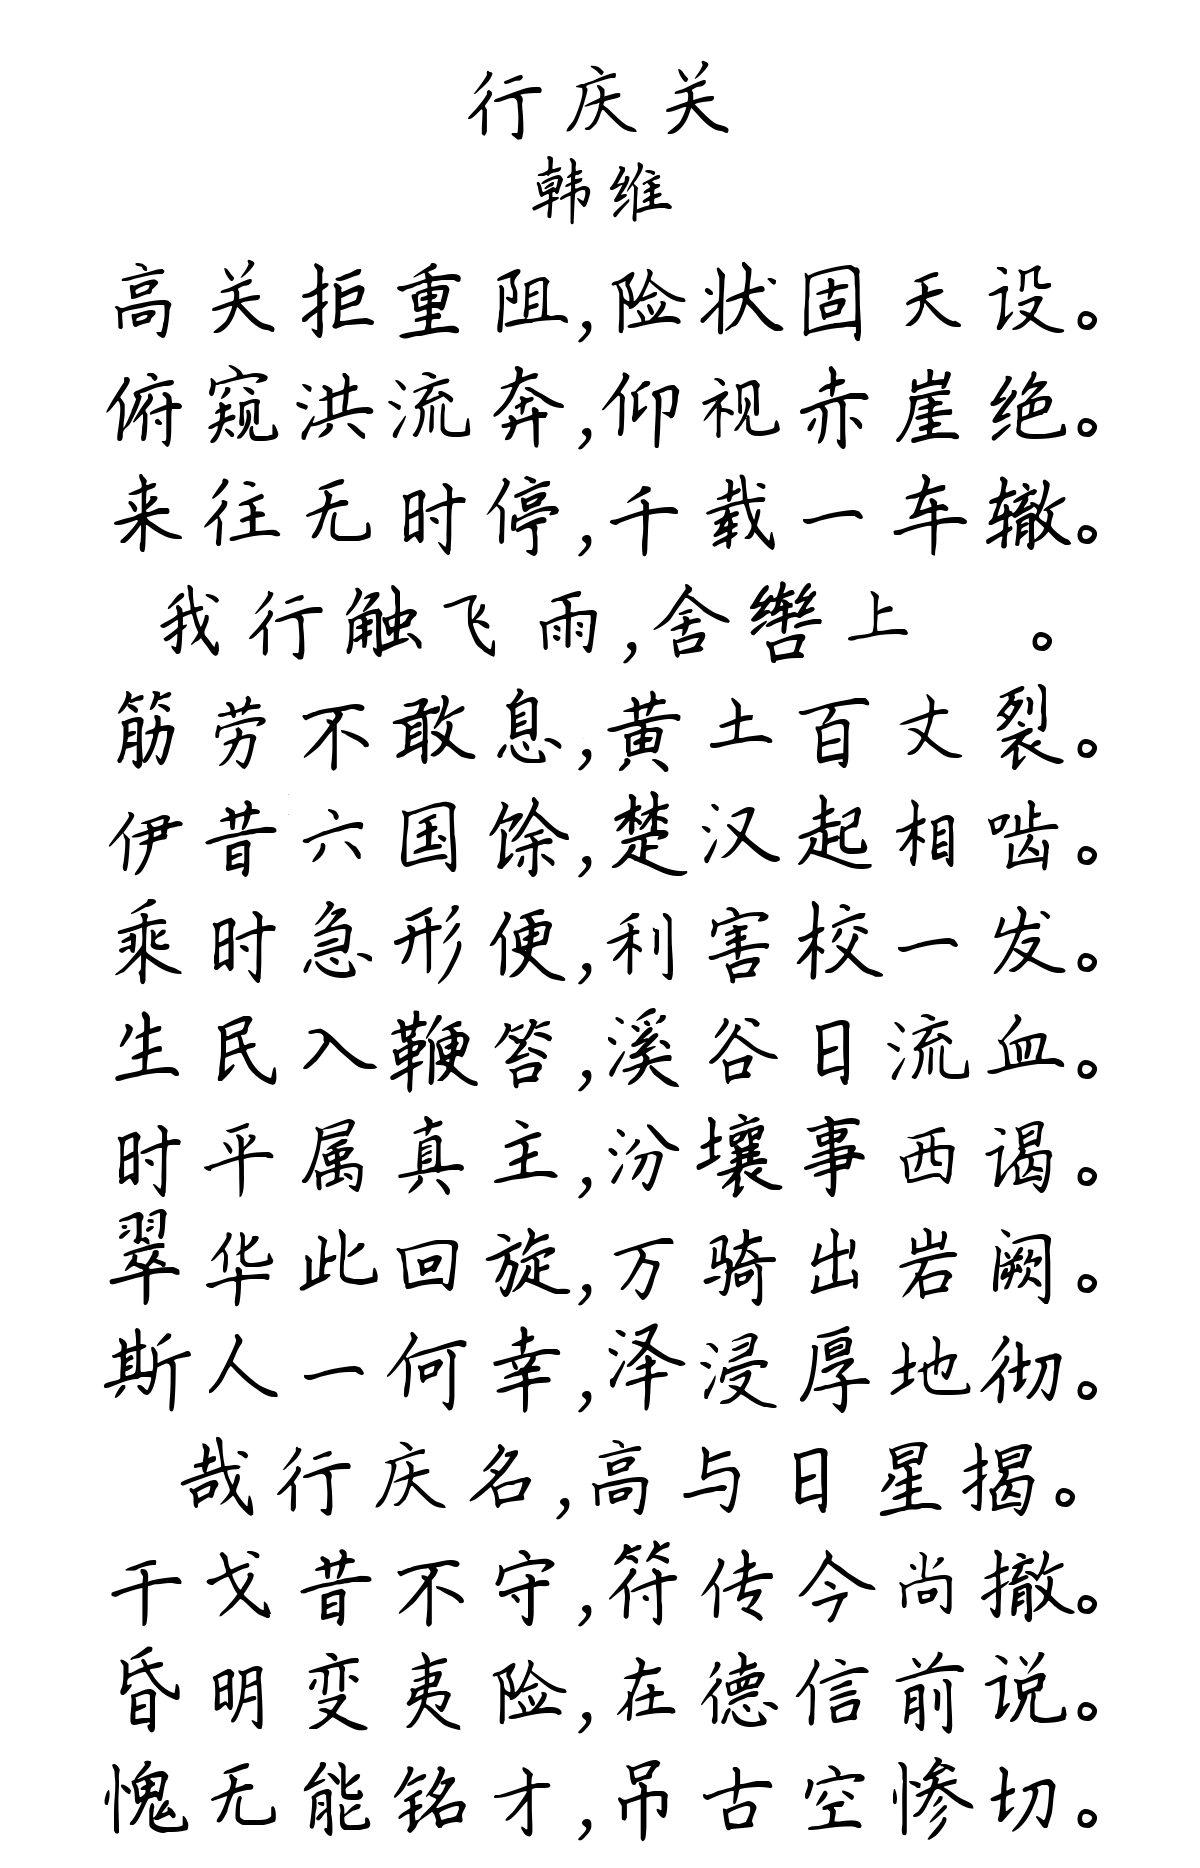 行庆关
韩维
高关拒重阻,险状固天设。
俯窥洪流奔,仰视赤崖绝。
来往无时停,千载一车辙。
我行触飞雨,舍辔上 。
筋劳不敢息,黄土百丈裂。
伊昔六国馀,楚汉起相啮。
乘时急形便,利害校一发。
生民入鞭笞,溪谷日流血。
时平属真主,汾壤事西谒。
翠华此回旋,万骑出岩阙。
斯人一何幸,泽浸厚地彻。
哉行庆名,高与日星揭。
干戈昔不守,符传今尚撤。
昏明变夷险,在德信前说。
愧无能铭才,吊古空惨切。